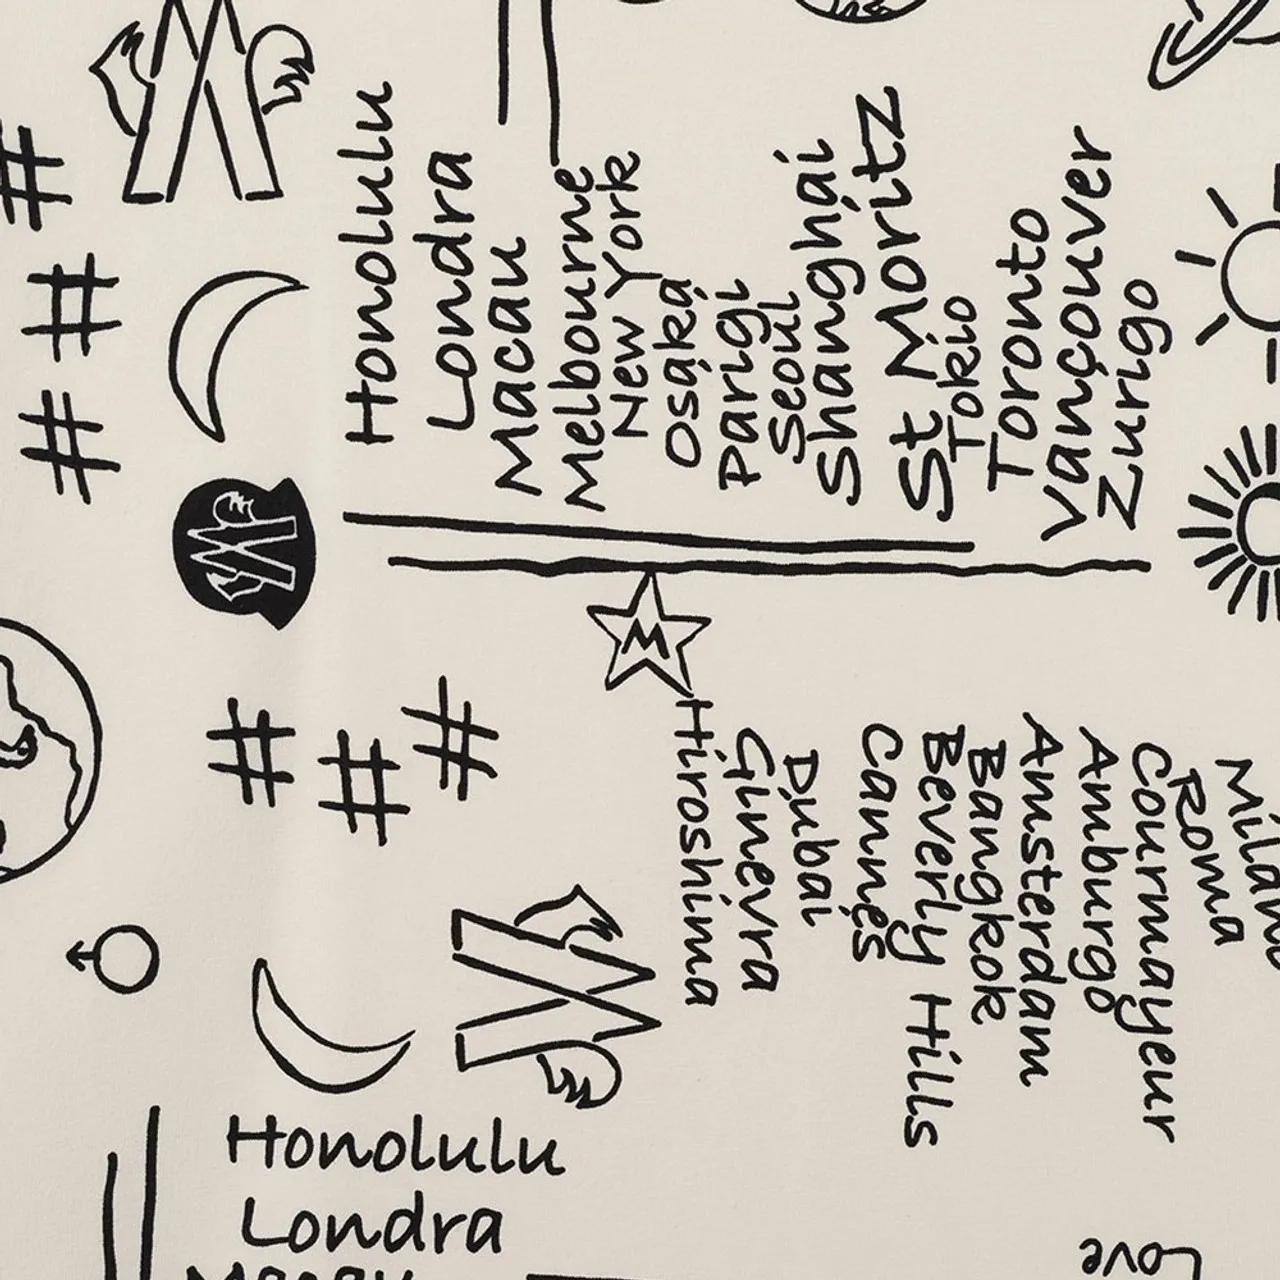 Honolulu
Londra
Macau
Melbourne
New York
Osaka
Parigi
Seoul
Shanghai
St Moritz
Tokio
Toronto
Vancouver
Zurigo
M
Milano
Roma
Courmayeur
Amburgo
Amsterdam
Bangkok
Beverly Hills
Cannes
Dubai
Ginevra
Hiroshima
# # #
# # #
Honolulu
Londra
Macau
Love